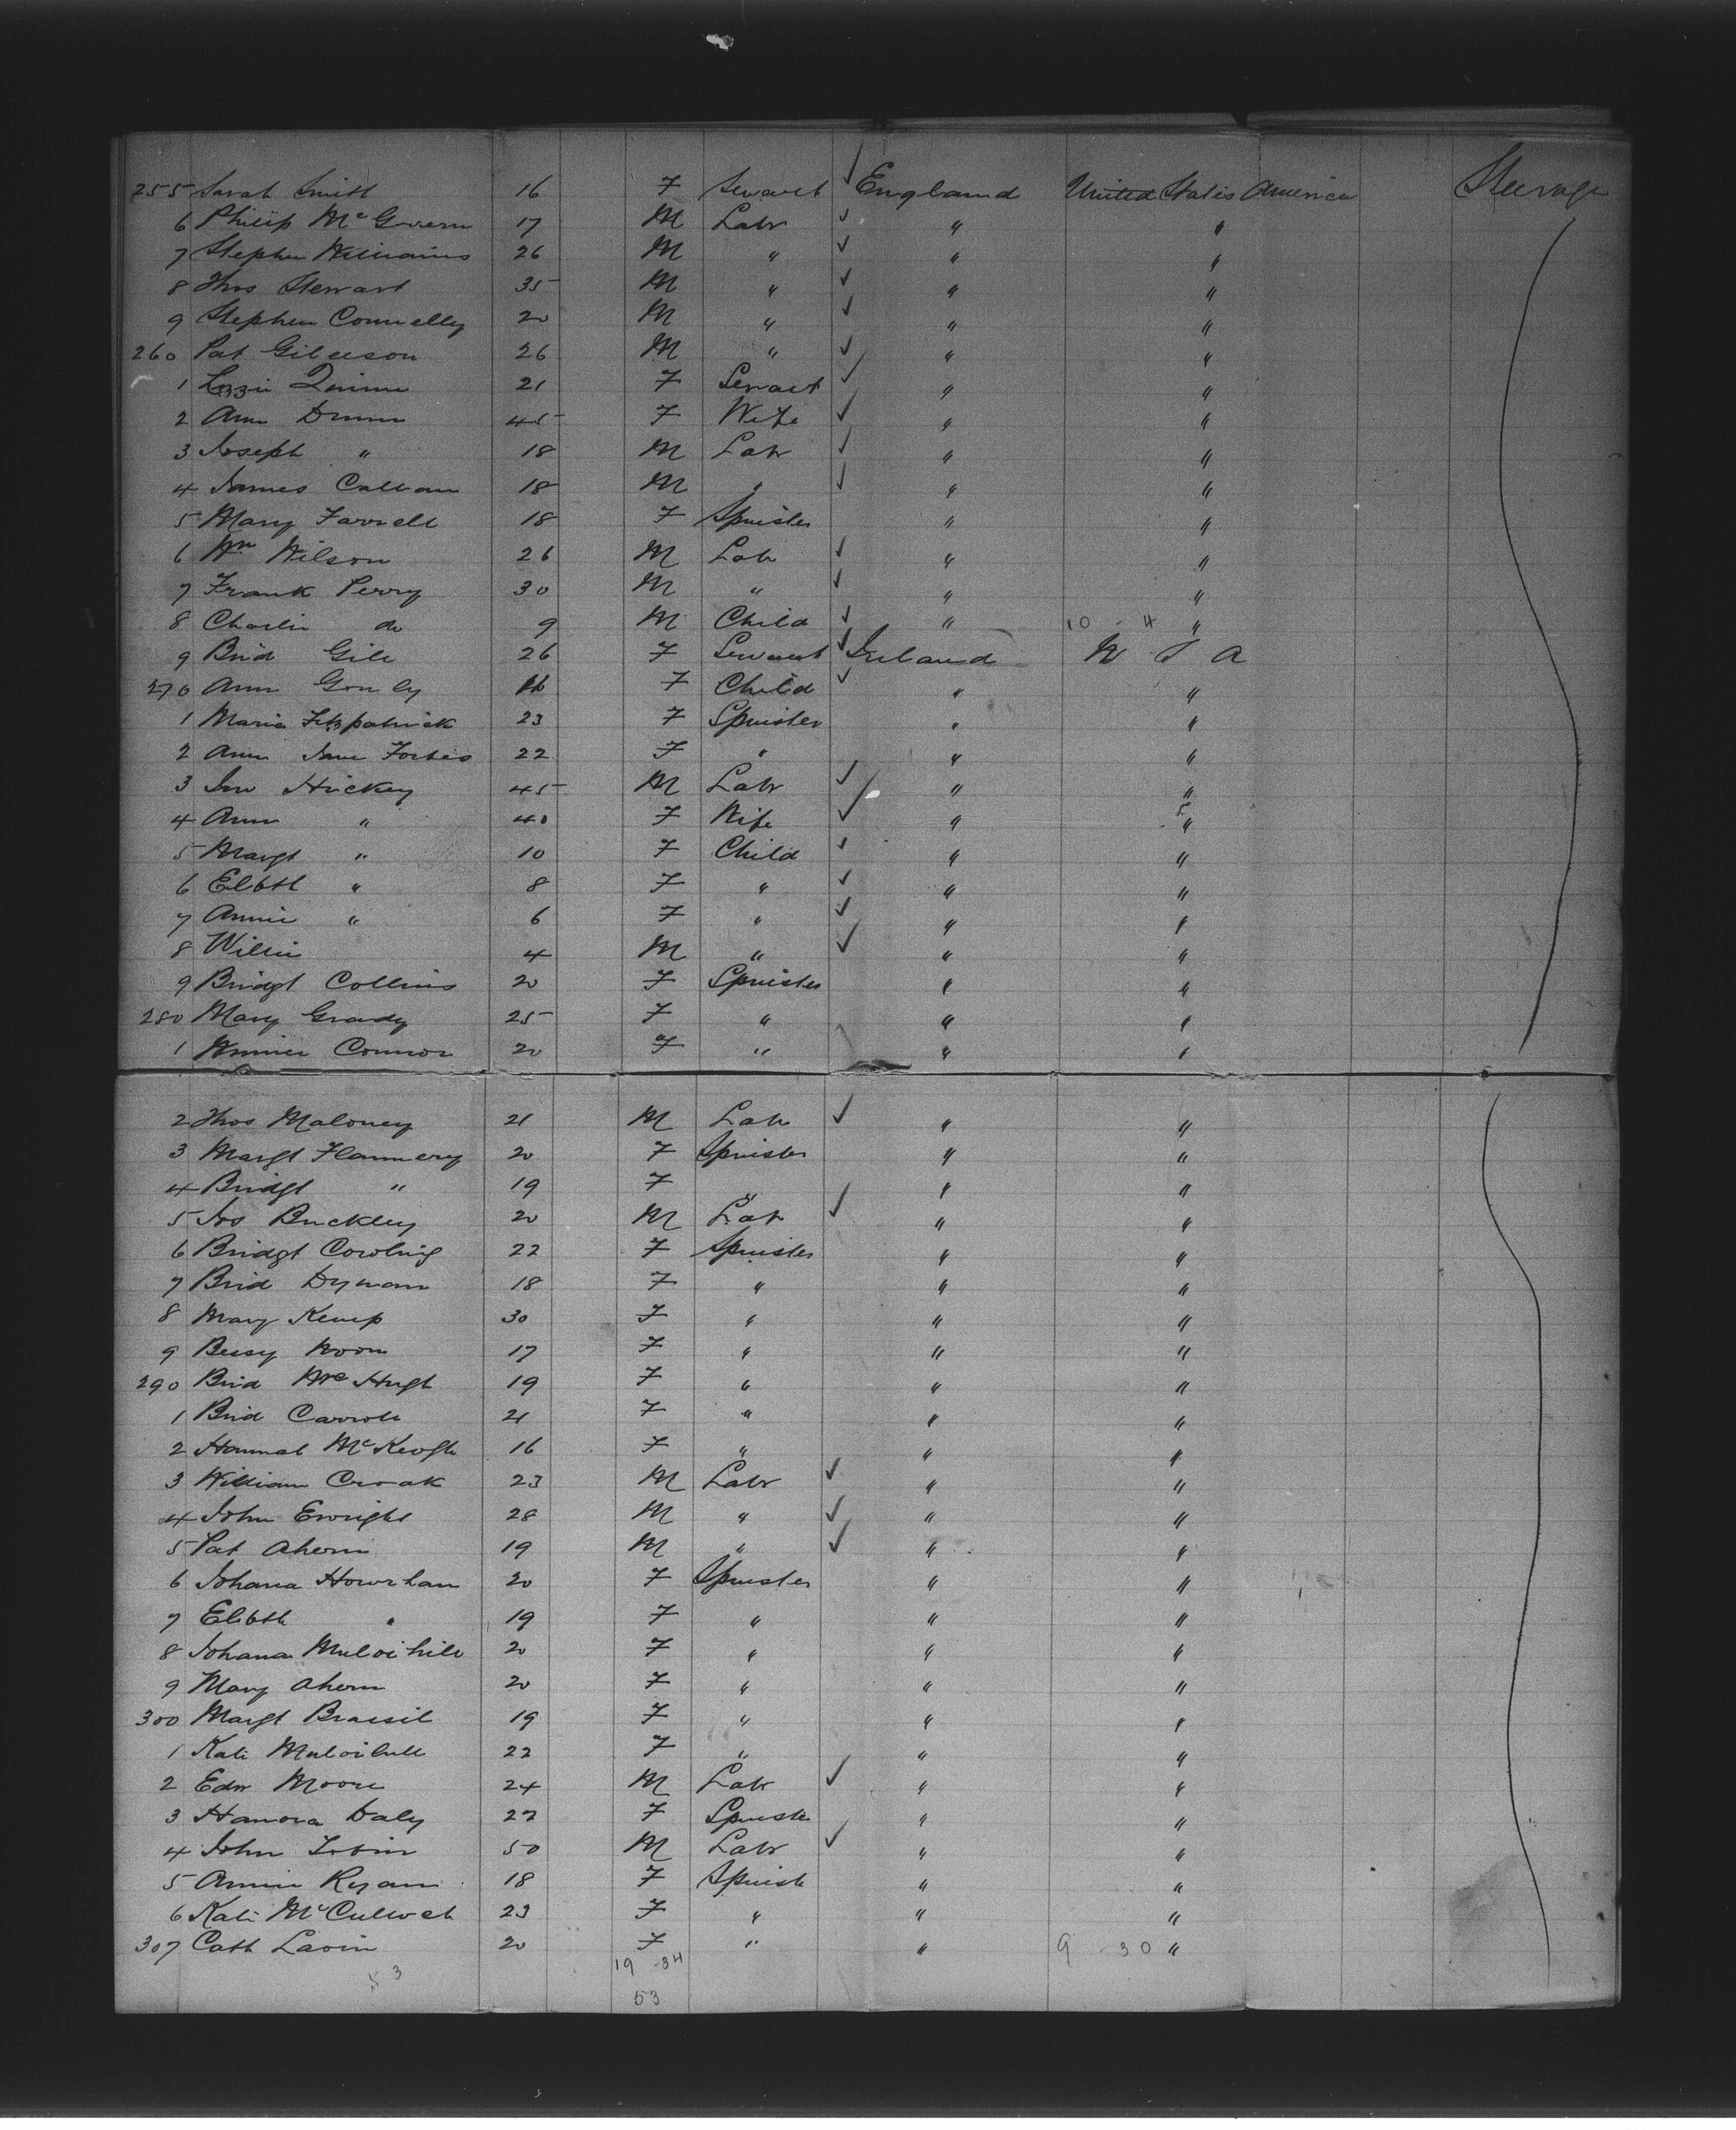 255 Sarah Smith 16 F Servant ✓ England United States America Steerage
6 Philip McGovern 17 M Labr ✓ " "
7 Stephen Williams 26 M " ✓ " "
8 Thos Stewart 35 M " ✓ " "
9 Stephen Connelly 20 M " ✓ " "
260 Pat Gileeson 26 M " ✓ " "
1 Lizzie Quinn 21 F Servact ✓ " "
2 Ann Dunn 45 F Wife ✓ " "
3 Joseph " 18 M Labr ✓ " "
4 James Callan 18 M " ✓ " "
5 Mary Farrell 18 F Spinster " "
6 Wm Wilson 26 M Labr ✓ " "
7 Frank Perry 30 M " ✓ " "
8 Charlie do 9 M Child ✓ " 10 - 4 "
9 Brid Gill 26 F Servant ✓ Ireland U S A
270 Ann Gonly 11 F Child ✓ " "
1 Maria Fitzpatrick 23 F Spinster " "
2 Ann Jane Forbes 22 F " " "
3 Jno Hickey 45 M Labr ✓ " "
4 Ann " 40 F Wife ✓ " "
5 Margt " 10 F Child ✓ " "
6 Elbth " 8 F " ✓ " "
7 Annie " 6 F " ✓ " "
8 Willie 4 M " ✓ " "
9 Bridgt Collins 20 F Spinster " "
280 Mary Grady 25 F " " "
1 Winnie Connor 20 F " " "
2 Thos Maloney 21 M Labr ✓ " "
3 Margt Flannery 20 F Spinster " "
4 Bridgt " 19 F " " "
5 Jos Buckley 20 M Labr ✓ " "
6 Bridgt Cowling 22 F Spinster " "
7 Brid Dynan 18 F " " "
8 Mary Kemp 30 F " " "
9 Bessy Noon 17 F " " "
290 Brid McHugh 19 F " " "
1 Brid Carroll 21 F " " "
2 Hannah McKeogh 16 F " " "
3 William Croak 23 M Labr ✓ " "
4 John Enright 28 M " ✓ " "
5 Pat Ahern 19 M " ✓ " "
6 Johana Hourhan 20 F Spinster " "
7 Elibth " 19 F " " "
8 Johana Muloihill 20 F " " "
9 Mary Ahern 20 F " " "
300 Margt Brassil 19 F " " "
1 Kate Muloihill 22 F " " "
2 Edw Moore 24 M Labr ✓ " "
3 Hanora Daly 22 F Spinster " "
4 John Tobin 50 M Labr ✓ " "
5 Annie Ryan 18 F Spinst " "
6 Kate McCulloch 23 F " " "
307 Cath Lavin 20 F " " 9 - 30 "
19 - 34
53 53